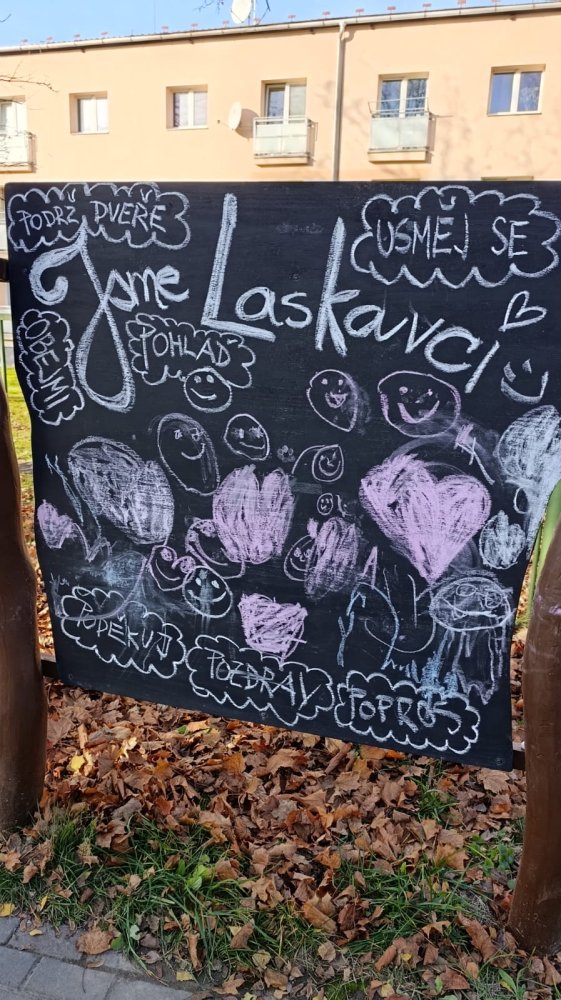 PODRŽ DVEŘE
USMĚJ SE
Jsme Laskavci
OBEJMI
POHLAĎ
PODĚKUJ
POZDRAV
POPROS